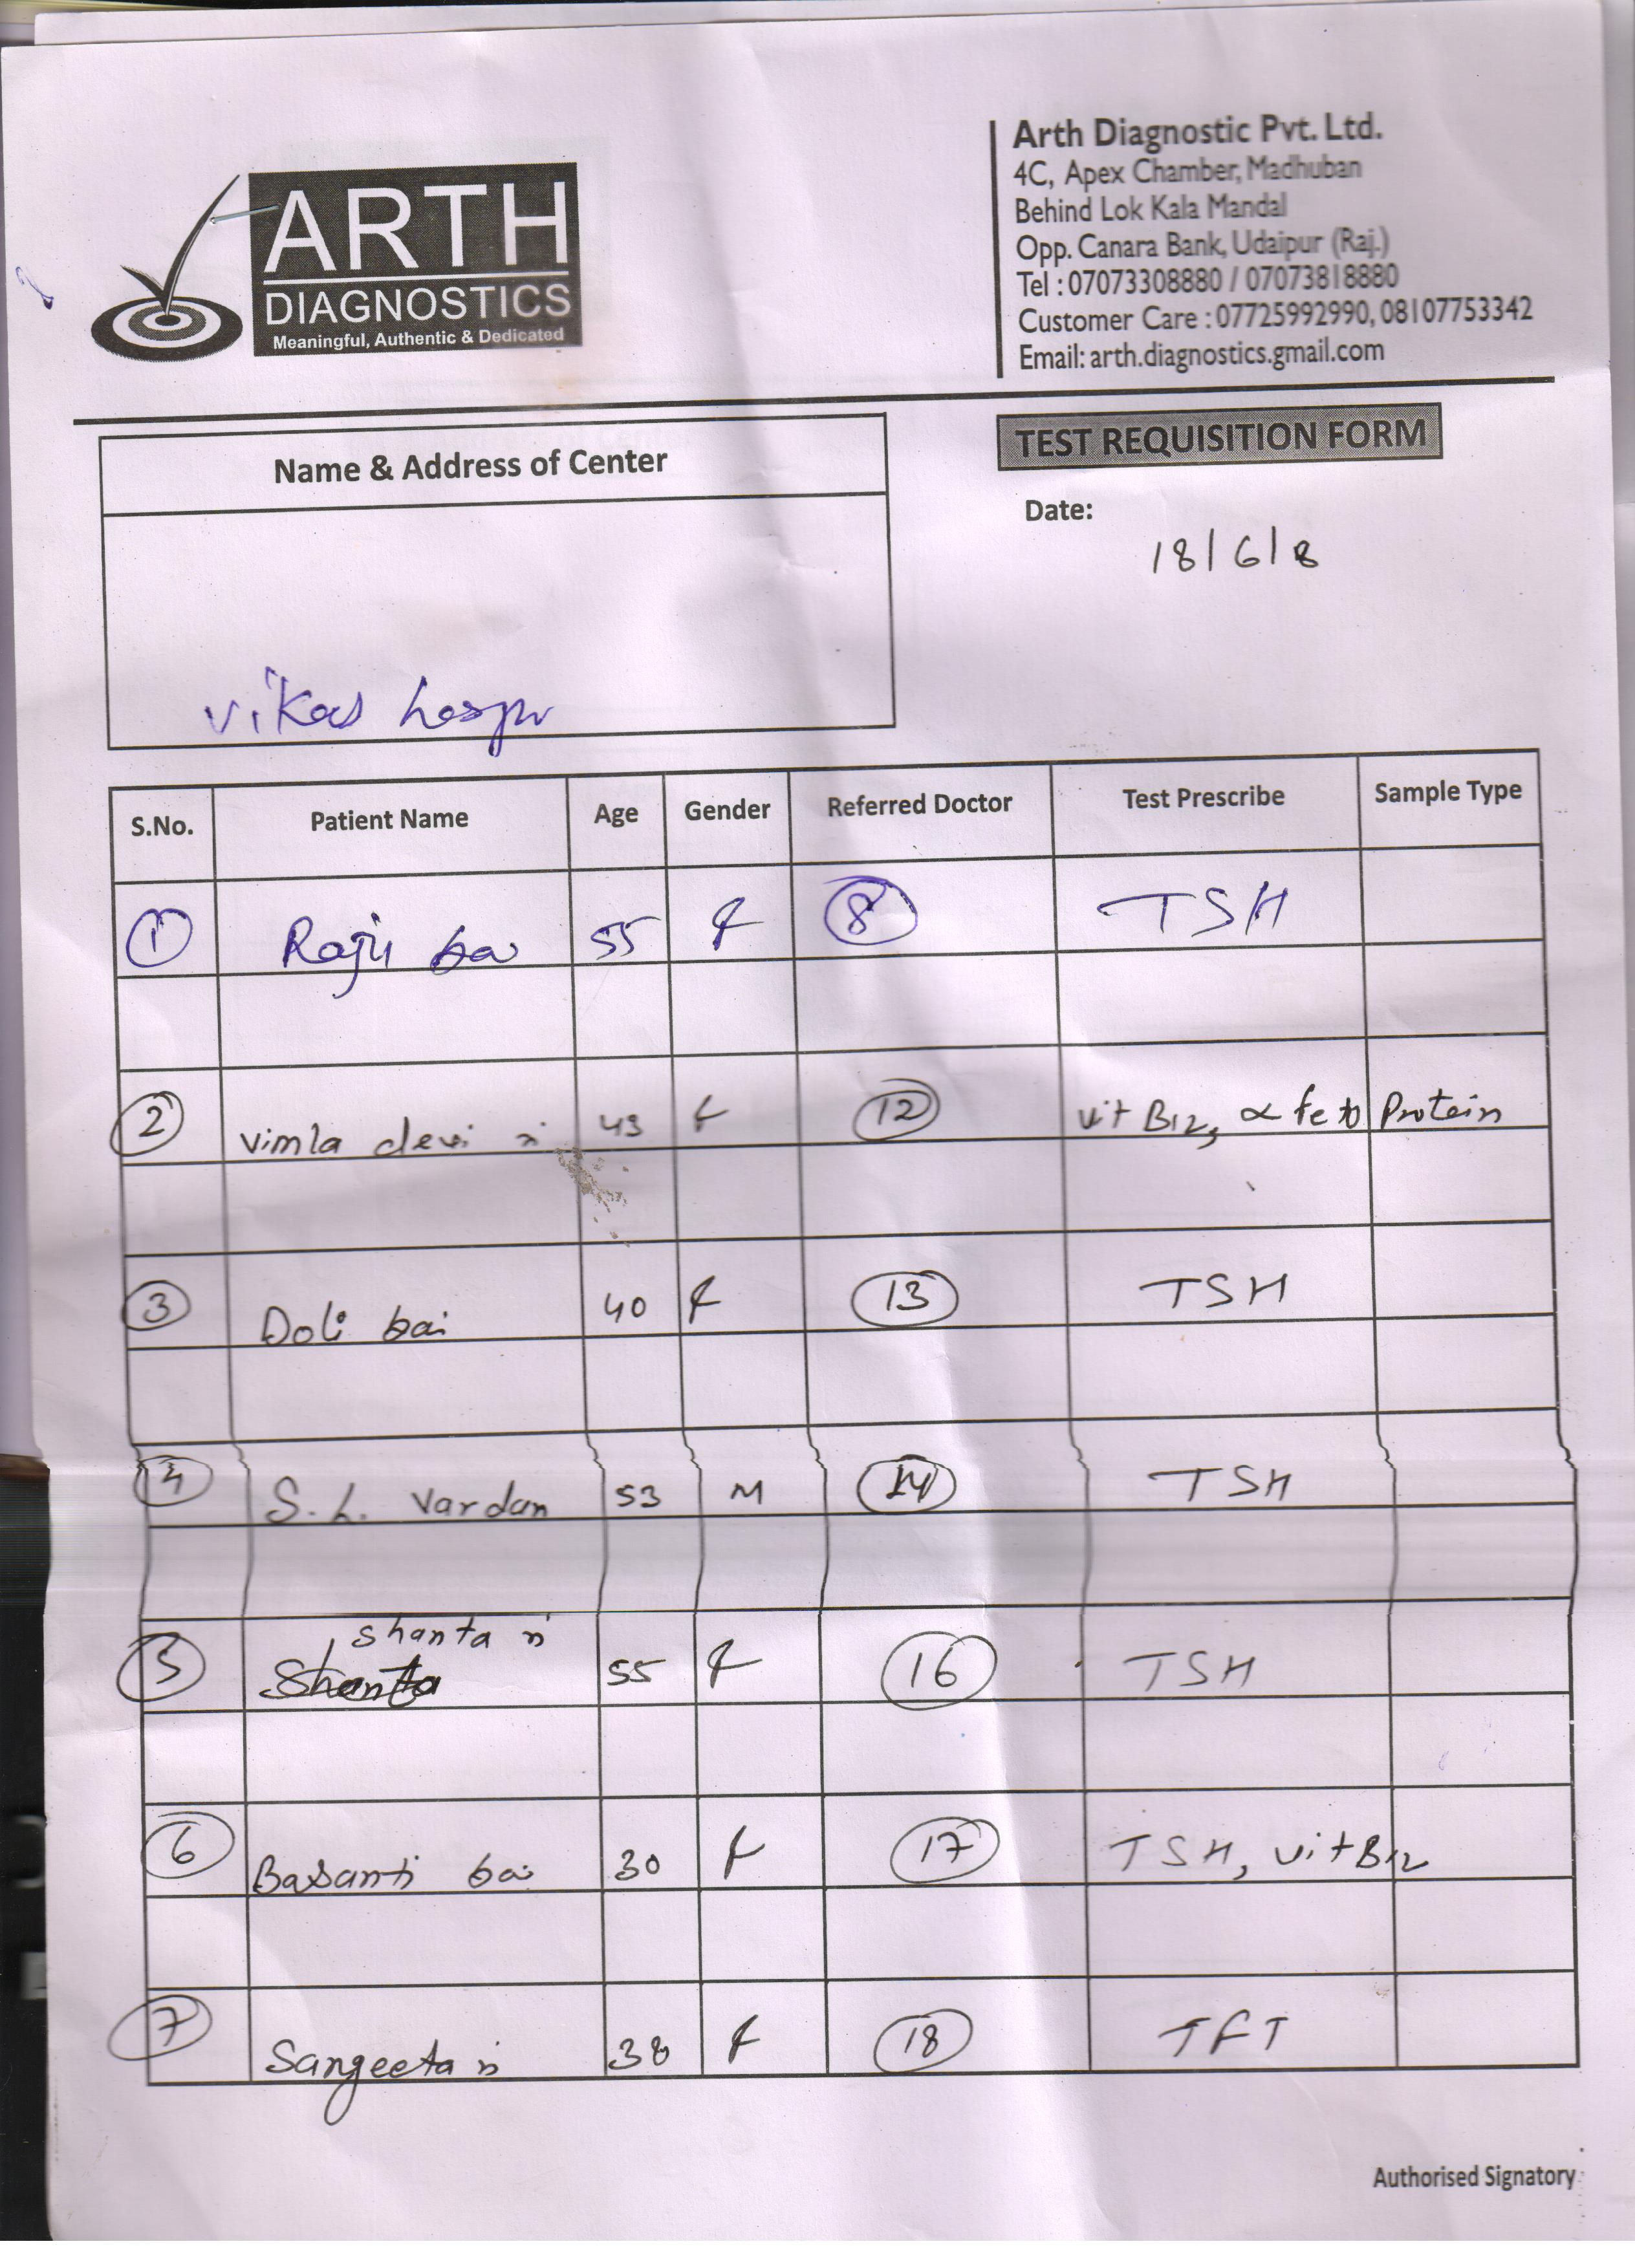 ARTH
DIAGNOSTICS
Meaningful, Authentic & Dedicated
Arth Diagnostic Pvt. Ltd.
4C, Apex Chamber, Madhuban
Behind Lok Kala Mandal
Opp. Canara Bank, Udaipur (Raj.)
Tel : 07073308880 / 07073818880
Customer Care : 07725992990, 08107753342
Email: arth.diagnostics.gmail.com
Name & Address of Center
TEST REQUISITION FORM
Date:
18/6/8
Vikas
S.No. Patient Name Age Gender Referred Doctor Test Prescribe Sample Type
1 Raju bai 55 F 8 TSH
2 Vimla devi 43 F 12 Vit B12, α feto Protein
3 Doli bai 40 F 13 TSH
4 S.L. Vardan 53 M 14 TSH
Shanta
5 Shanta 55 F 16 TSH
6 Basanti bai 30 F 17 TSH, Vit B12
7 Sangeeta 38 F 18 TFT
Authorised Signatory